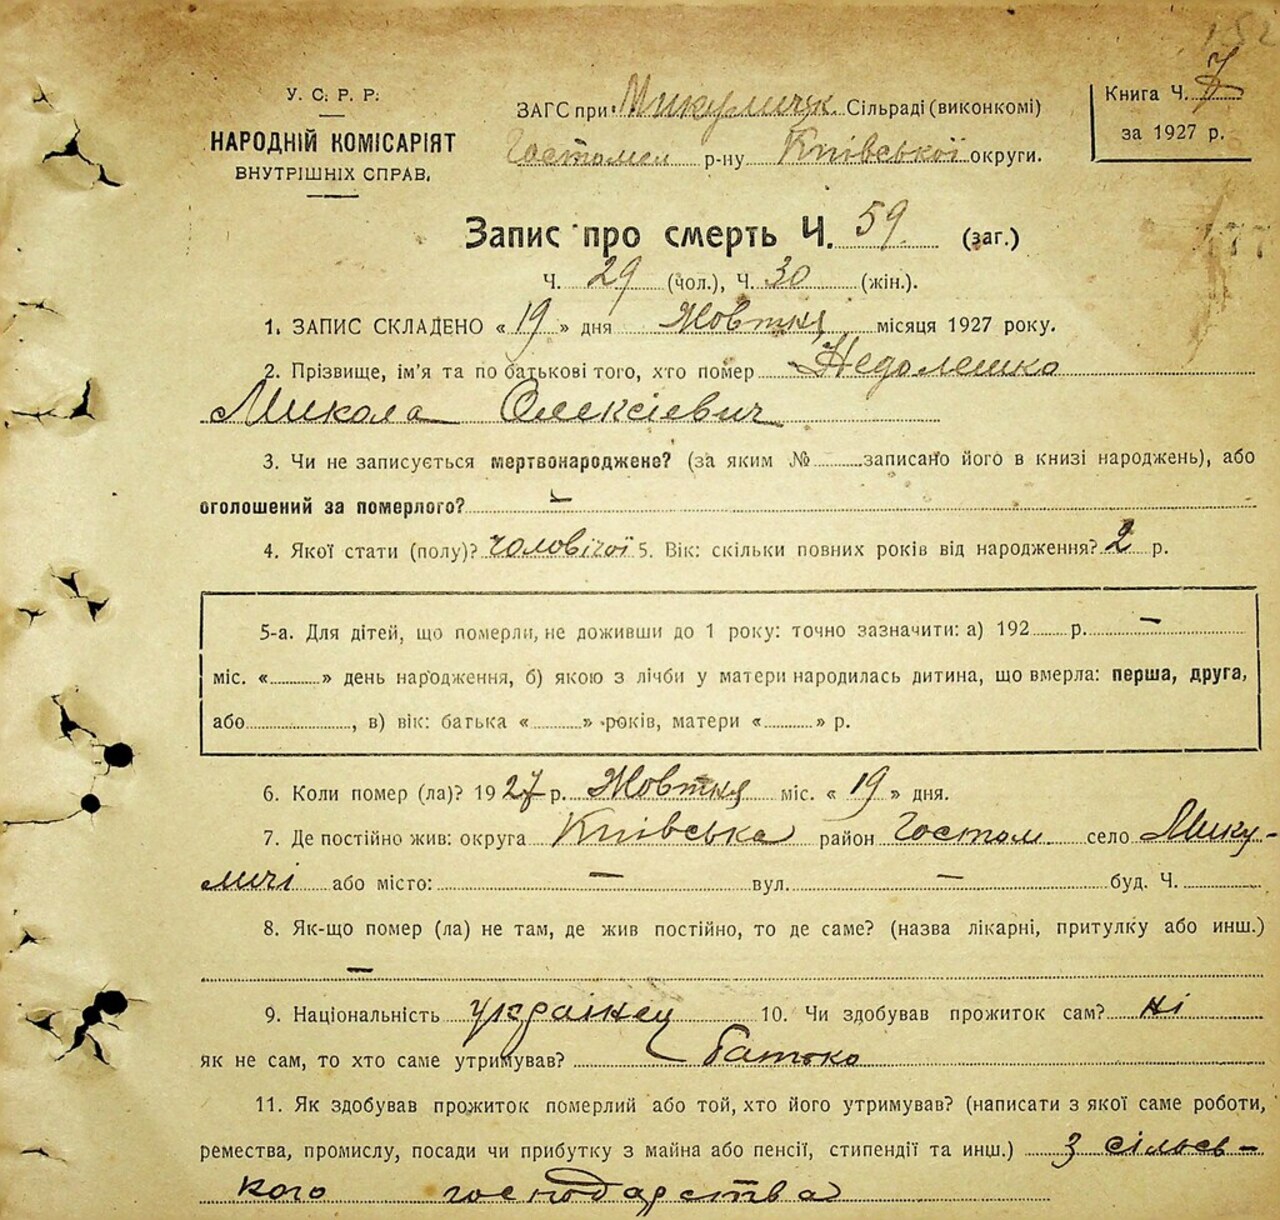 152
У. С. Р. Р.
НАРОДНІЙ КОМІСАРІЯТ
ВНУТРІШНІХ СПРАВ.
ЗАГС при Микулицк. Сільраді (виконкомі)
Гостомел р-ну Київської округи.
Книга Ч. 7
за 1927 р.
Запис про смерть Ч. 59. (заг.)
Ч. 29 (чол.), Ч. 30 (жін.).
1. ЗАПИС СКЛАДЕНО « 19 » дня Жовтня місяця 1927 року.
2. Прізвище, ім'я та по батькові того, хто помер Недолешко
Микола Олексієвич
3. Чи не записується мертвонароджене? (за яким № записано його в книзі народжень), або
оголошений за померлого? —
4. Якої стати (полу)? чоловічої 5. Вік: скільки повних років від народження? 2 р.
5-а. Для дітей, що померли, не доживши до 1 року: точно зазначити: а) 192 р. —
міс. « » день народження, б) якою з лічби у матери народилась дитина, що вмерла: перша, друга,
або , в) вік: батька « » років, матери « » р.
6. Коли помер (ла)? 1927 р. Жовтня міс. « 19 » дня.
7. Де постійно жив: округа Київська район Гостом. село Мику-
личі або місто: — вул. — буд. Ч.
8. Як-що помер (ла) не там, де жив постійно, то де саме? (назва лікарні, притулку або инш.)
—
9. Національність українец 10. Чи здобував прожиток сам? ні
як не сам, то хто саме утримував? батько
11. Як здобував прожиток померлий або той, хто його утримував? (написати з якої саме роботи,
ремества, промислу, посади чи прибутку з майна або пенсії, стипендії та инш.) З сільсь-
кого господарства